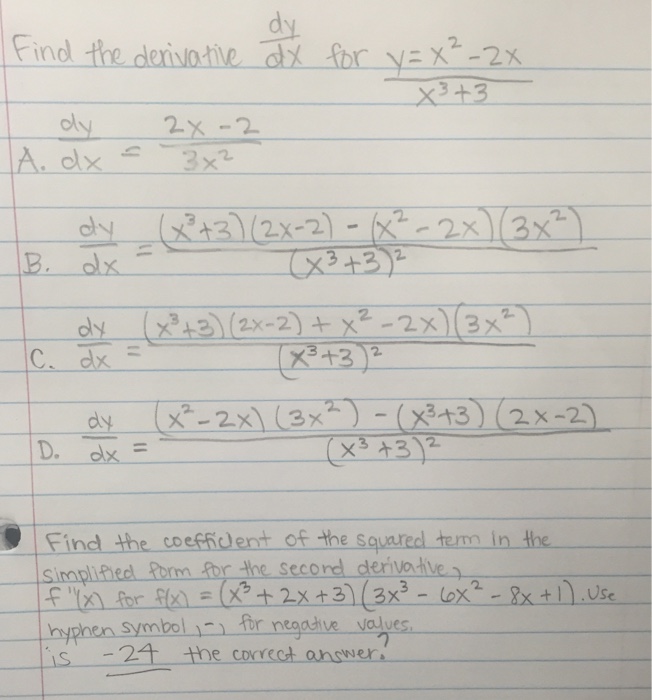 Find the derivative dy/dx for y = x² - 2x / x³ + 3
A. dy/dx = 2x - 2 / 3x²
B. dy/dx = (x³+3)(2x-2) - (x² - 2x)(3x²) / (x³+3)²
C. dy/dx = (x³+3)(2x-2) + x² - 2x)(3x²) / (x³+3)²
D. dy/dx = (x² - 2x)(3x²) - (x³+3)(2x-2) / (x³+3)²
Find the coefficient of the squared term in the
simplified form for the second derivative,
f"(x) for f(x) = (x³ + 2x + 3)(3x³ - 6x² - 8x + 1). Use
hyphen symbol, -, for negative values.
is -24 the correct answer?